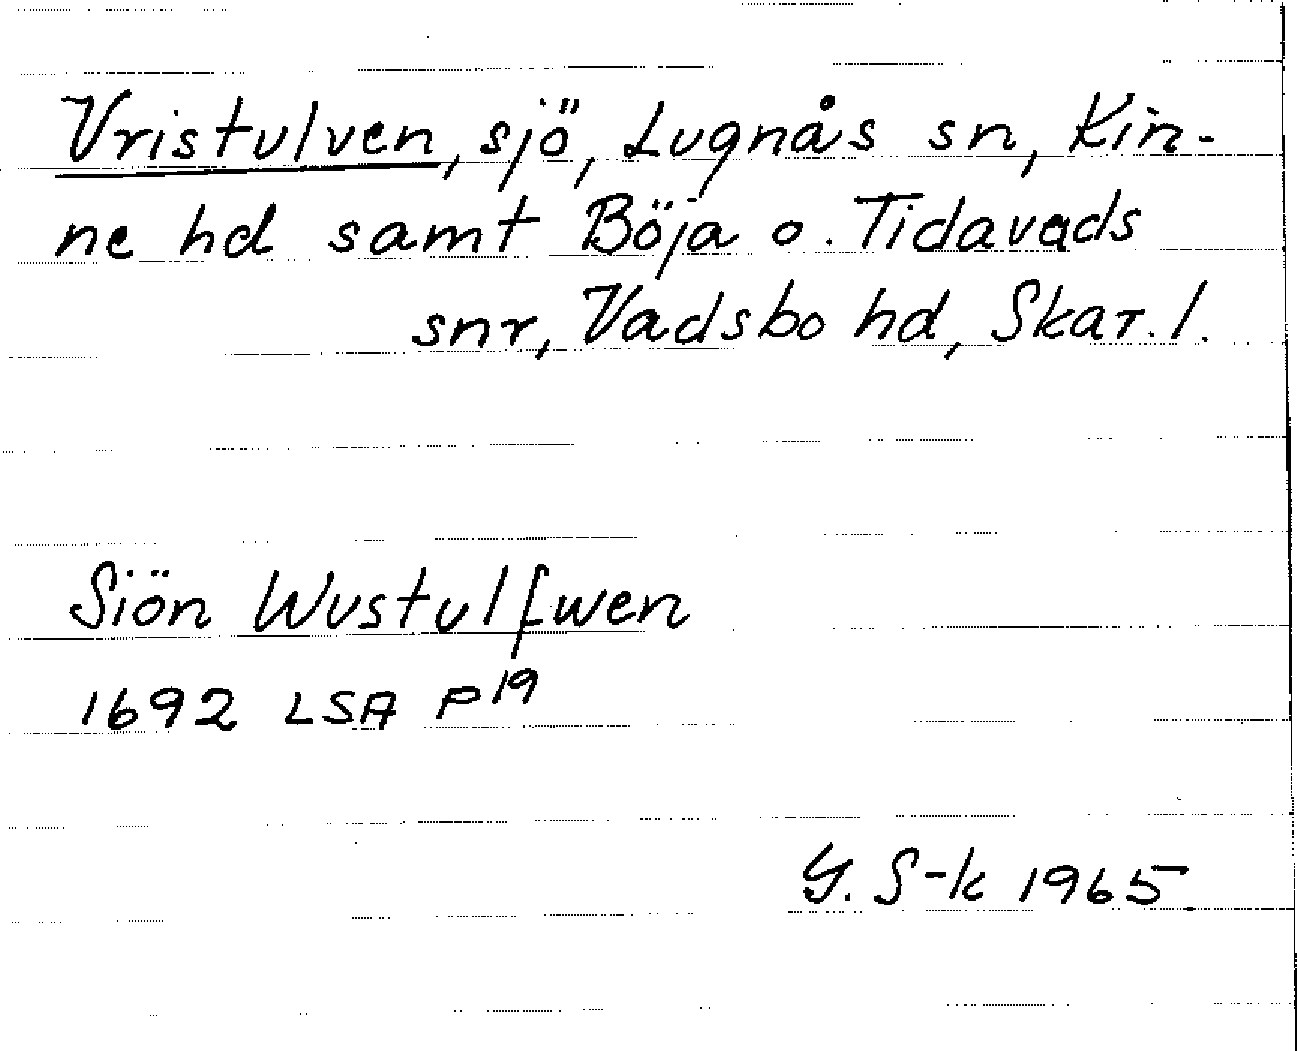 Vristulven, sjö, Lugnås sn, Kin-
ne hd samt Böja o. Tidavads
snr, Vadsbo hd, Skar. l.
Siön Wustulfwen
1692 LSA P19
G. S-k 1965